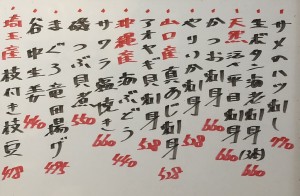 サメのハツ刺 770
生ボタン海老刺身(3本)
天然活平目刺身 660
かつお刺身 660
やりいか刺身 538
山口産真あじ刺身 538
アオヤギ刺身 538
沖縄産海ぶどう 440
サワラ刺身 660
磯つぶ貝 550
まぐろ竜田揚げ 495
谷中生姜 440
埼玉産枝付き枝豆 418